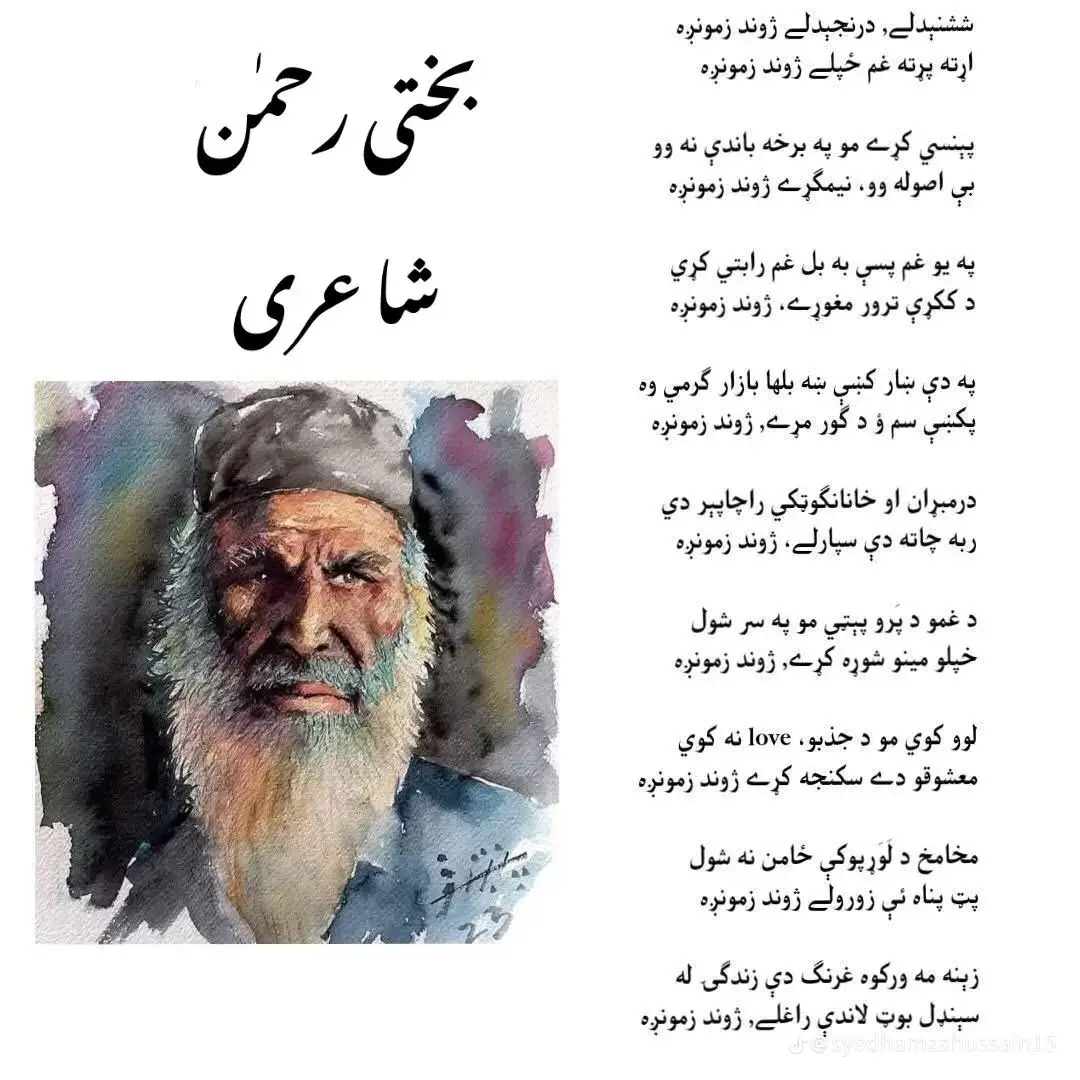 بختی رحمٰن
شاعری
ششنېدلے, درنجېدلے ژوند زمونږه
اړته پړته غم ځپلے ژوند زمونږه
پېنسي کړے مو په برخه باندې نه وو
بې اصوله وو، نیمګړے ژوند زمونږه
په یو غم پسې به بل غم رابتي کړي
د ککړې ترور مغوړے، ژوند زمونږه
په دې ښار کښې ښه بلها بازار گرمي وه
پکښې سم ؤ د گور مړے, ژوند زمونږه
درمبړان او خانانگوټکي راچاپېر دي
ربه چاته دې سپارلے، ژوند زمونږه
د غمو د پَرو پېټي مو په سر شول
خپلو مینو شوړه کړے, ژوند زمونږه
لوو کوي مو د جذبو، love نه کوي
معشوقو دے سکنجه کړے ژوند زمونږه
مخامخ د لَوَړپوکې ځامن نه شول
پټ پناه ئې زورولے ژوند زمونږه
زېنه مه ورکوه غرنگ دې زندگۍ له
سېنډل بوټ لاندې راغلے, ژوند زمونږه
@syedhamzahussain15